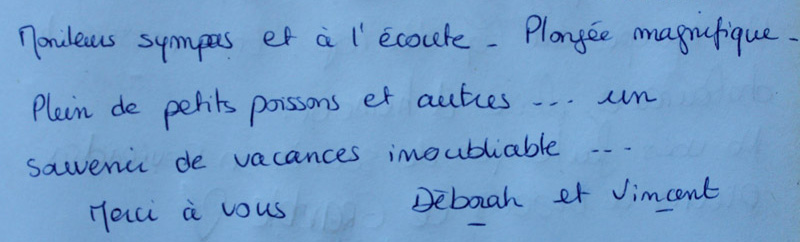 Moniteurs sympas et à l'écoute - Plongée magnifique -
Plein de petits poissons et autres --- un
souvenir de vacances inoubliable ---
Merci à vous Déborah et Vincent